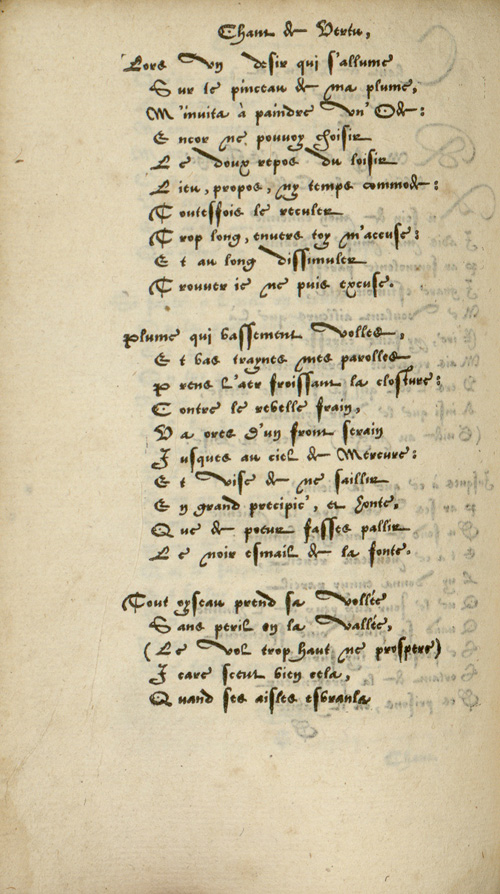 Chant de Vertu,
Lors vn desir qui s'allume
Sur le pinceau de ma plume,
M'inuita à paindre vn' Ode:
Encor ne pouuoy choisir
Le doux repos du loisir
Lieu, propos, ny temps commode:
Toutesfois le reculer
Trop long, enuers toy m'accuse:
Et au long dissimuler
Trouuer ie ne puis excuse.
Plume qui bassement volles,
Et bas traynes mes parolles
Prens l'aer froissant la closture:
Contre le rebelle frain,
Va ores d'un front serain
Iusques au ciel de Mercure:
Et vise de ne saillir
En grand precipic', et honte,
Que de poeur fasses pallir
Le noir esmail de la fonte.
Tout oyseau prend sa vollée
Sans peril en la vallée,
(Le vol trop haut ne prospere)
Icare sceut bien cela,
Quand ses aisles esbranla